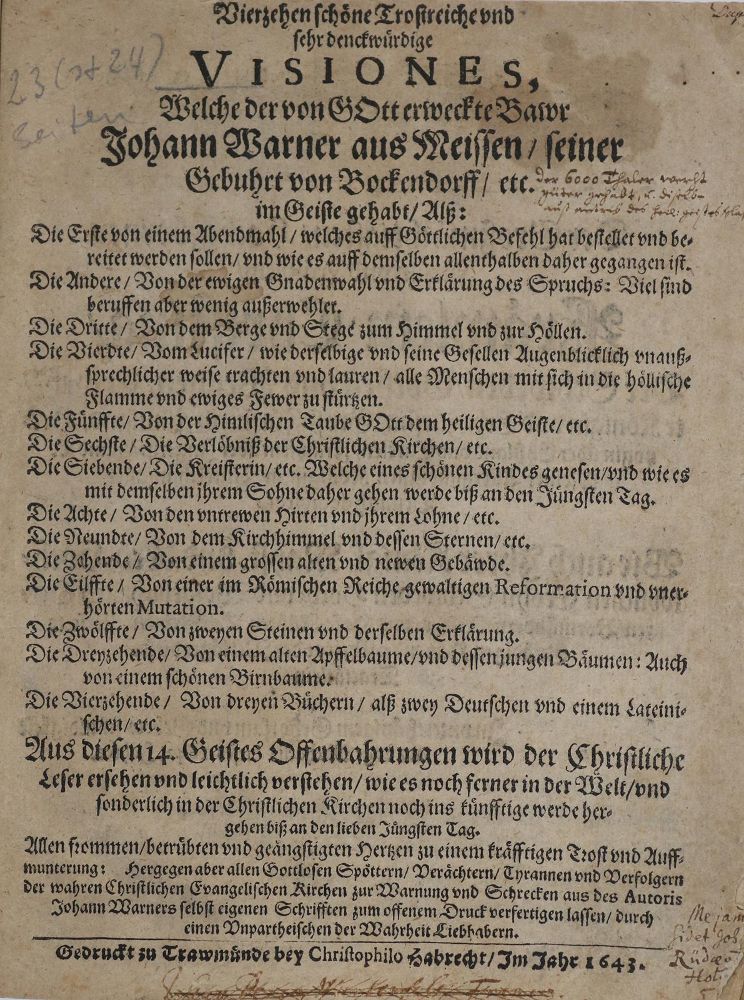 Vierzehen schöne Trostreiche vnd
sehr denckwürdige
VISIONES,
Welche der von GOtt erweckte Bawr
Johann Warner aus Meissen / seiner
Gebuhrt von Bockendorff / etc.
im Geiste gehabt / Alß:
Die Erste von einem Abendmahl / welches auff Göttlichen Befehl hat bestellet vnd be-
reitet werden sollen / vnd wie es auff demselben allenthalben daher gegangen ist.
Die Andere / Von der ewigen Gnadenwahl vnd Erklärung des Spruchs: Viel sind
beruffen aber wenig außerwehlet.
Die Dritte / Von dem Berge vnd Stege zum Himmel vnd zur Höllen.
Die Vierdte / Vom Lucifer / wie derselbige vnd seine Gesellen Augenblicklich vnauß-
sprechlicher weise trachten vnd lauren / alle Menschen mit sich in die höllische
Flamme vnd ewiges Fewer zu stürtzen.
Die Fünffte / Von der Himlischen Taube GOtt dem heiligen Geiste / etc.
Die Sechste / Die Verlöbniß der Christlichen Kirchen / etc.
Die Siebende / Die Kreisterin / etc. Welche eines schönen Kindes genesen / vnd wie es
mit demselben jhrem Sohne daher gehen werde biß an den Jüngsten Tag.
Die Achte / Von den vntrewen Hirten vnd jhrem Lohne / etc.
Die Neundte / Von dem Kirchhimmel vnd dessen Sternen / etc.
Die Zehende / Von einem grossen alten vnd newen Gebäwde.
Die Eilffte / Von einer im Römischen Reiche gewaltigen Reformation vnd vner-
hörten Mutation.
Die Zwölffte / Von zweyen Steinen vnd derselben Erklärung.
Die Dreyzehende / Von einem alten Apffelbaume / vnd dessen jungen Bäumen: Auch
von einem schönen Birnbaume.
Die Vierzehende / Von dreyen Büchern / alß zwey Deutschen vnd einem Lateini-
schen / etc.
Aus diesen 14. Geistes Offenbahrungen wird der Christliche
Leser ersehen vnd leichtlich verstehen / wie es noch ferner in der Welt / vnd
sonderlich in der Christlichen Kirchen noch ins künfftige werde her-
gehen biß an den lieben Jüngsten Tag.
Allen frommen / betrübten vnd geängstigten Hertzen zu einem kräfftigen Trost vnd Auff-
munterung: Hergegen aber allen Gottlosen Spöttern / Verächtern / Tyrannen vnd Verfolgern
der wahren Christlichen Evangelischen Kirchen zur Warnung vnd Schrecken aus des Autoris
Johann Warners selbst eigenen Schrifften zum offenem Druck verfertigen lassen / durch
einen Vnpartheischen der Warheit Liebhabern.
Gedruckt zu Trawmünde bey Christophilo Habrecht / Im Jahr 1643.
23 (st 24)
Seiten
der 6000 Thaler werht
güter gehabt, u. dieselbe